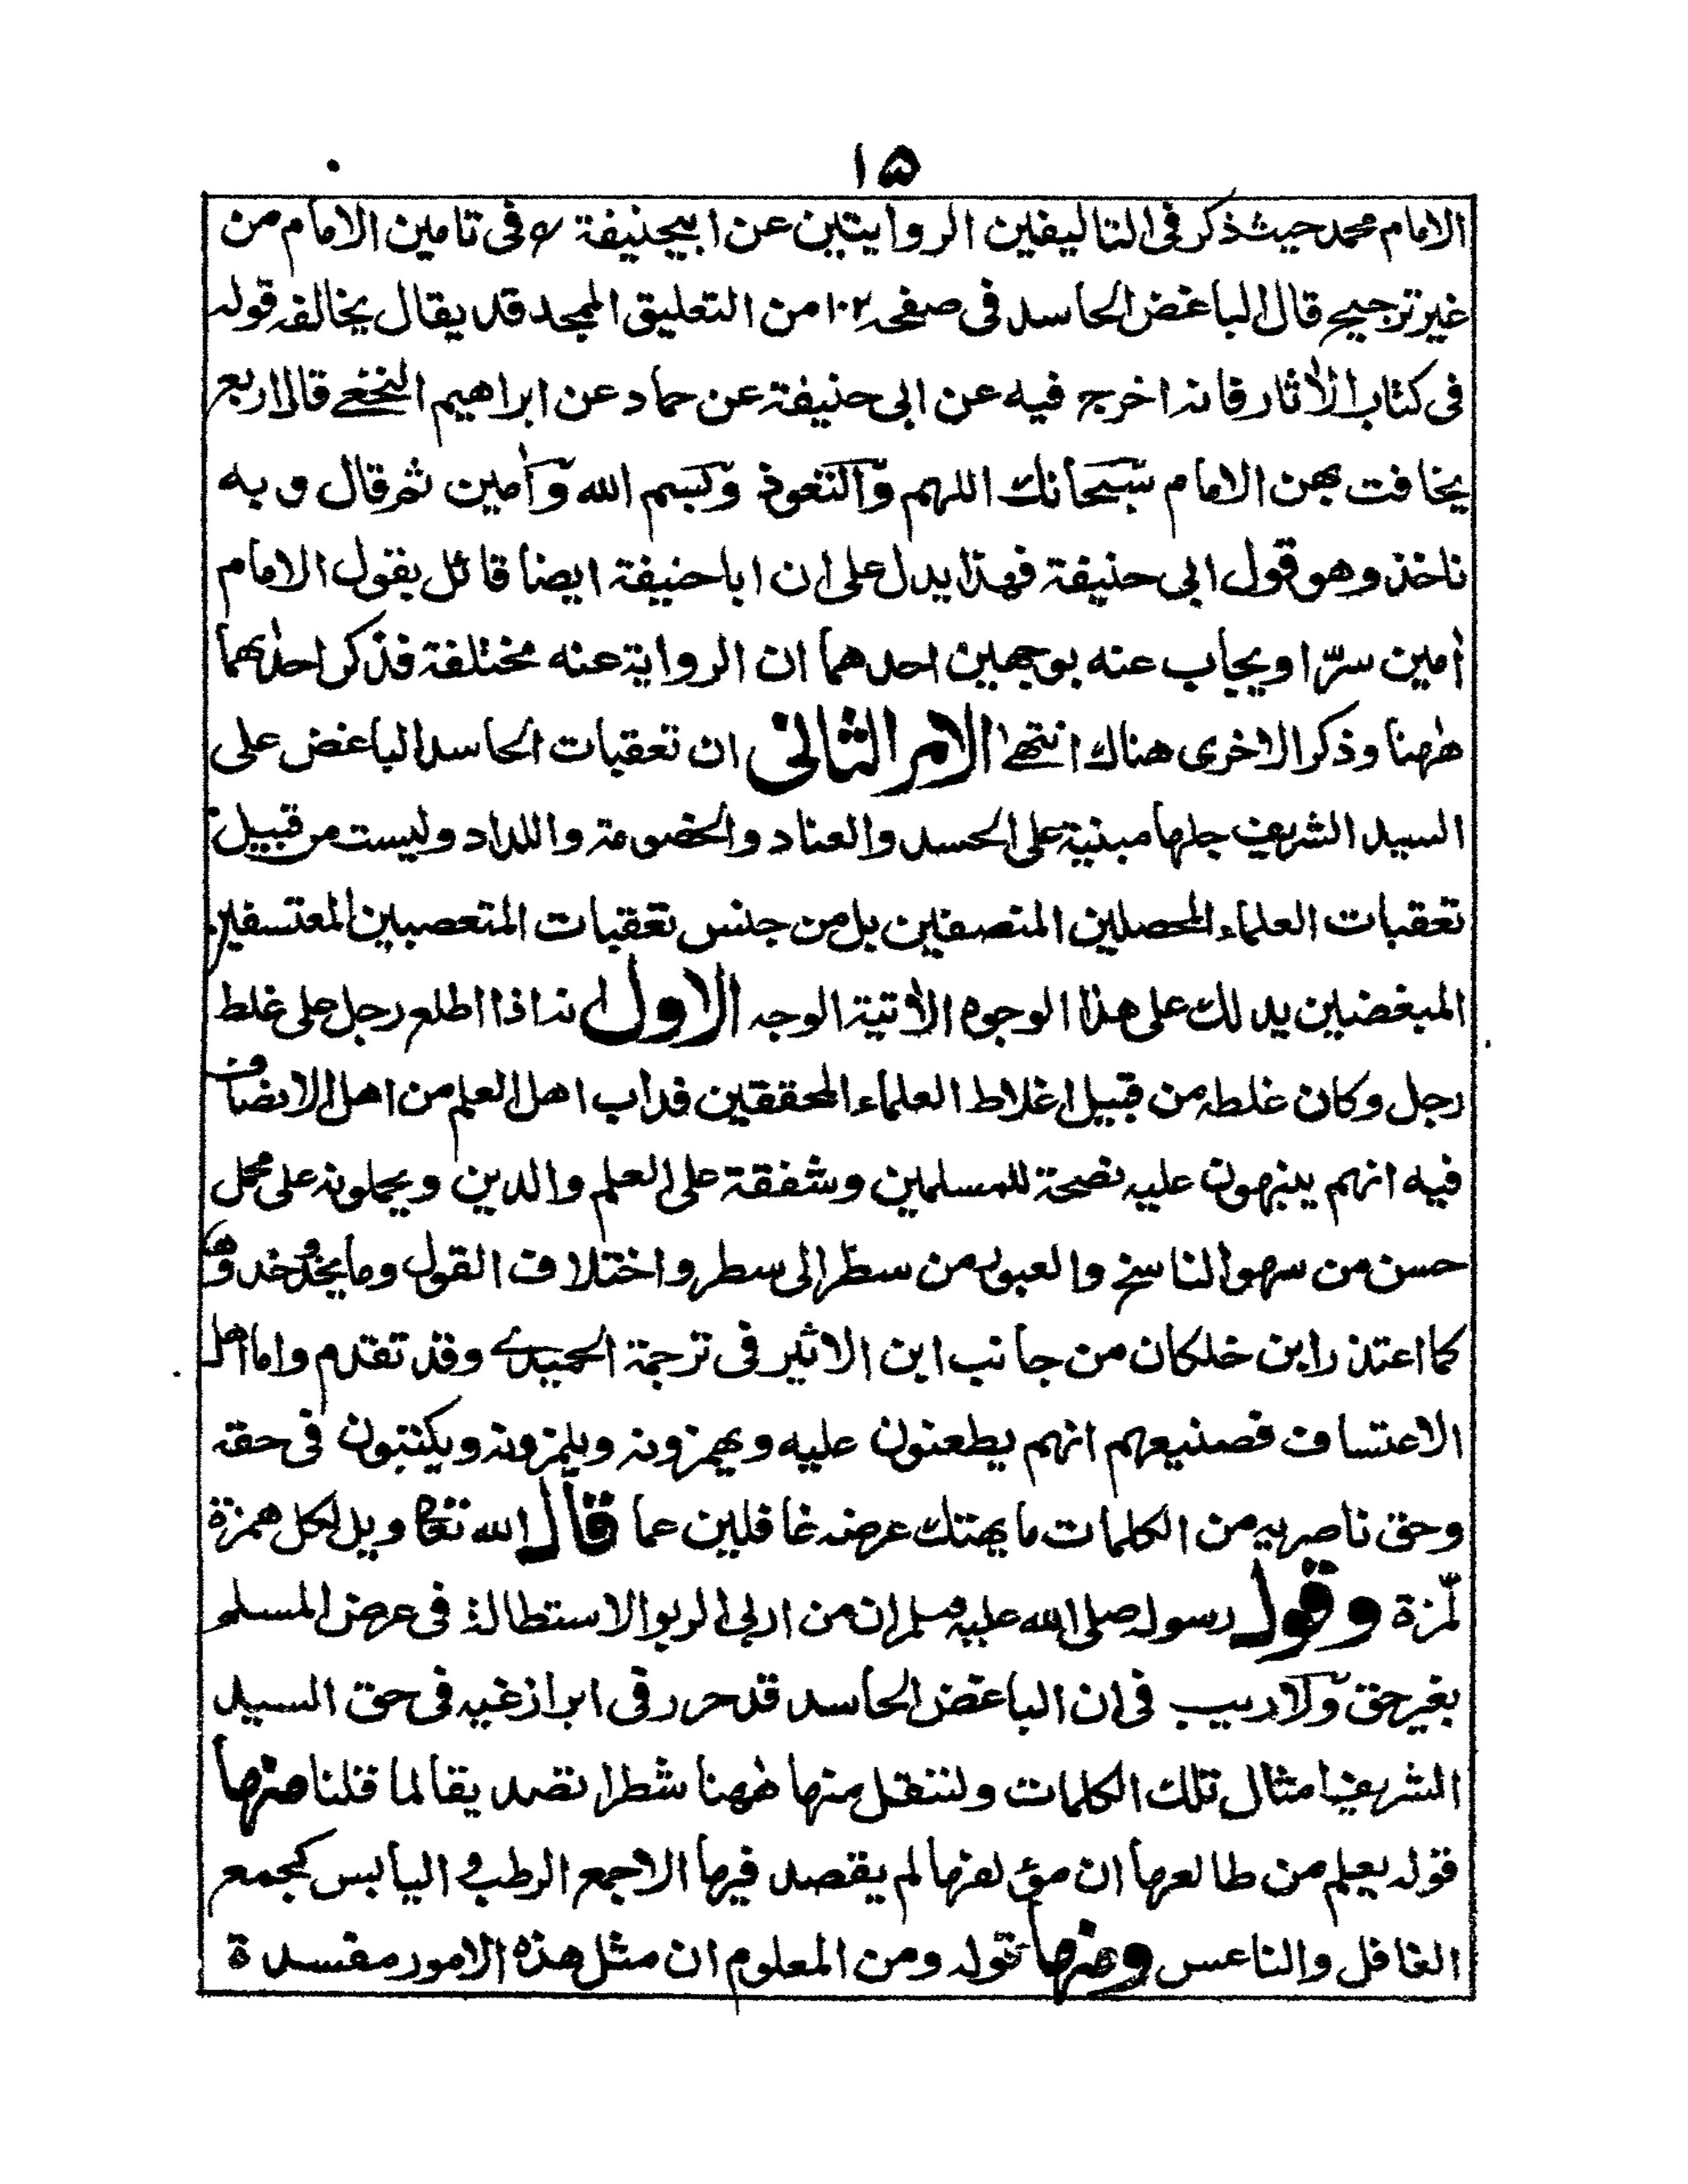 ۱۵
الامام محمد حيث ذكر فى التاليفين الروايتين عن ابيحنيفة رح فى تامين الامام من
غير ترجيح قال الباغض الحاسد فى صفحہ ۱۰۲ من التعليق الممجد قد يقال يخالفہ قولہ
فى كتاب الاٰثار فانہ اخرج فيه عن ابى حنيفۃ عن حماد عن ابراهيم النخعے قال اربع
يخافت بهن الامام سبحانك اللهم والتعوذ وبسم الله واٰمين ثم قال وبه
ناخذ وهو قول ابى حنيفۃ فهذا يدل على ان اباحنيفۃ ايضا قائل بقول الامام
اٰمين سرّا ويجاب عنه بوجهين احدهما ان الروايۃ عنه مختلفۃ فذكر احدٰهما
هٰهنا وذكر الاخرى هناك انتهےٰ الامر الثانى ان تعقبات الحاسد الباغض على
السيد الشريف جلها مبنيۃ على الحسد والعناد والخصومۃ واللداد وليست من قبيل
تعقبات العلماء المحصلين المنصفين بل من جنس تعقبات المتعصبين المعتسفين
المبغضين يدلك على هذا الوجوه الاٰتيۃ الوجہ الاول انہ اذا اطلع رجل على غلط
رجل وكان غلطہ من قبيل اغلاط العلماء المحققين فداب اهل العلم من اهل الانصاف
فيه انهم ينبهون عليہ نصحۃ للمسلمين وشفقۃ على العلم والدين ويحملونہ على محمل
حسن من سهو الناسخ والعبور من سطر الى سطر واختلاف القول وما يحذو حذوه
كما اعتذر ابن خلكان من جانب ابن الاثير فى ترجمۃ الحميدے وقد تقدم واما اهل
الاعتساف فصنيعهم انهم يطعنون عليه ويهمزونہ ويلمزونہ ويكتبون فى حقہ
وحق ناصريہ من الكلمات ما يهتك عرضہ غافلين عما قال الله تعا ويل لكل همزة
لّمزة وقول رسولہ صلى الله عليہ وسلم ان من اربى الربوا الاستطالۃ فى عرض المسلم
بغير حق ولا ريب فى ان الباغض الحاسد قد حرر فى ابراز غيہ فى حق السيد
الشريف امثال تلك الكلمات ولننقل منها هٰهنا شطرا تصديقا لما قلنا منها
قولہ يعلم من طالعها ان مؤلفها لم يقصد فيها الا جمع الرطب واليابس كجمع
الغافل والناعس ومنها قولہ ومن المعلوم ان مثل هذه الامور مفسدة